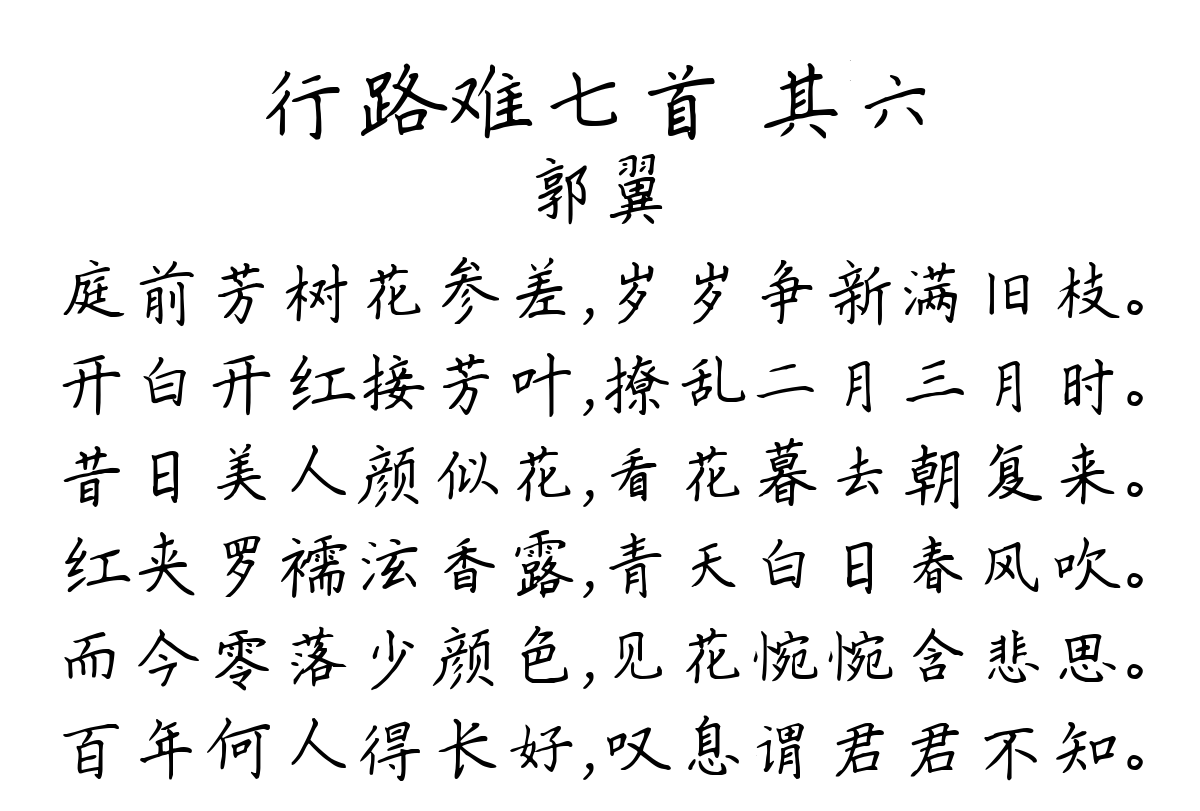 行路难七首 其六
郭翼
庭前芳树花参差,岁岁争新满旧枝。
开白开红接芳叶,撩乱二月三月时。
昔日美人颜似花,看花暮去朝复来。
红夹罗襦泫香露,青天白日春风吹。
而今零落少颜色,见花惋惋含悲思。
百年何人得长好,叹息谓君君不知。